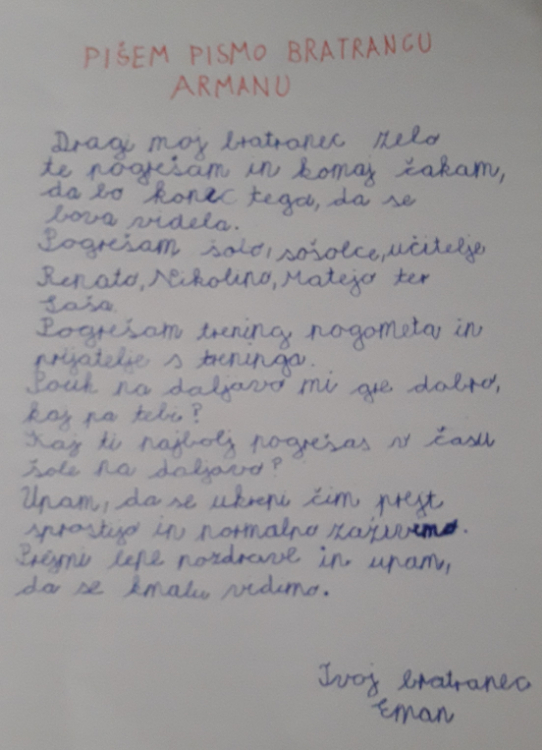 PIŠEM PISMO BRATRANCU
ARMANU
Dragi moj bratranec zelo
te pogrešam in komaj čakam,
da bo konec tega, da se
bova videla.
Pogrešam šolo, sošolce, učitelje
Renato, Nikolino, Matejo ter
Saša.
Pogrešam trening nogometa in
prijatelje s treninga.
Pouk na daljavo mi gre dobro,
kaj pa tebi?
Kaj ti najbolj pogrešas v času
šole na daljavo?
Upam, da se ukrepi čim prejt
sprostijo in normalno zaživimo.
Prejmi lepe pozdrave in upam,
da se kmalu vidimo.
Tvoj bratranec
Eman